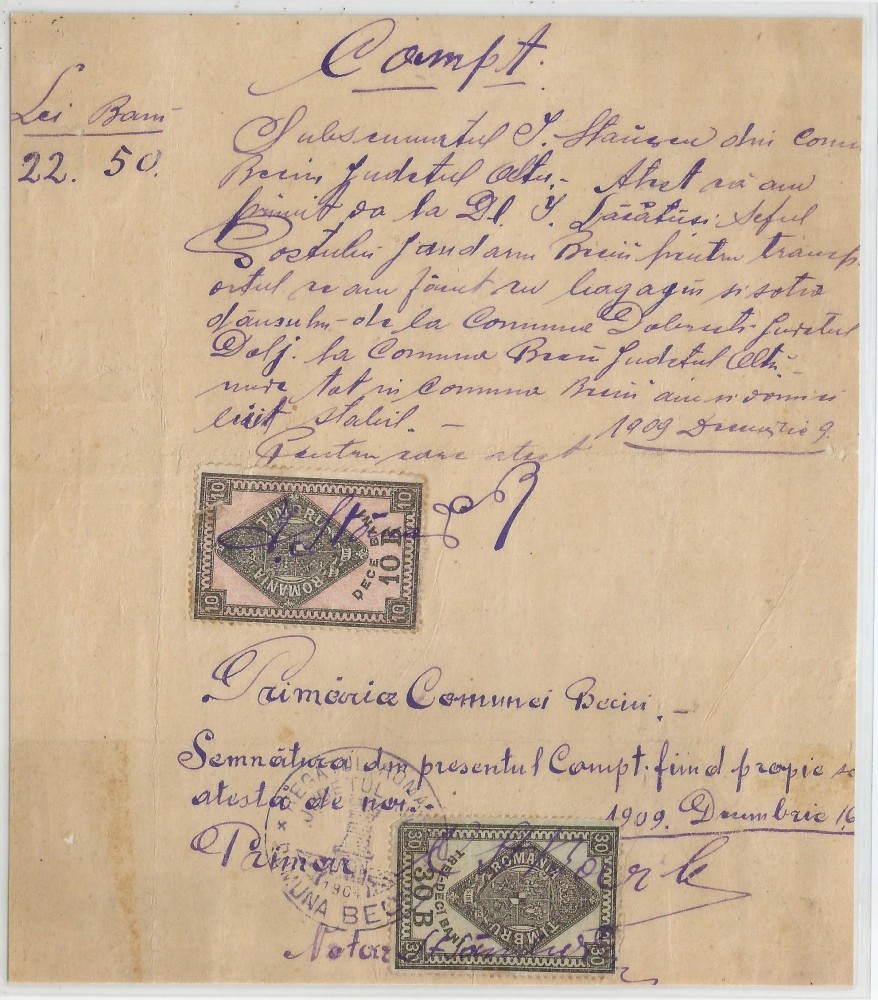 Compt.
Lei Bani
22. 50.
Subsemnatul I. Stănescu din Comu
Beciu Judetul Oltu. - Atest că am
primit da la Dl. I. Lăcătuși. Seful
Postului Jandarm Beciu pentru transp
ortul ce am făcut cu bagagiu si sotia
dânsului de la Comuna Dobresti Judetul
Dolj. la Comuna Beciu Judetul Oltu -
unde tot in Comuna Beciu am si domici
liut stabil. -
Pentru care atest 1909 Decembrie 9.
10 10
TIMBRU
ROMANIA
DECE BANI
10 B
10 10
Primăria Comunei Beciu. -
Semnătura din presentul Compt. fiind propie se
atestă de noi. 1909. Decembrie 16
Primar
REGATUL ROMA
JUDETUL
190
COMUNA BEC
30 30
ROMANIA
TIMBRU
TREI-DECI BANI
30 B
30 30
Notar